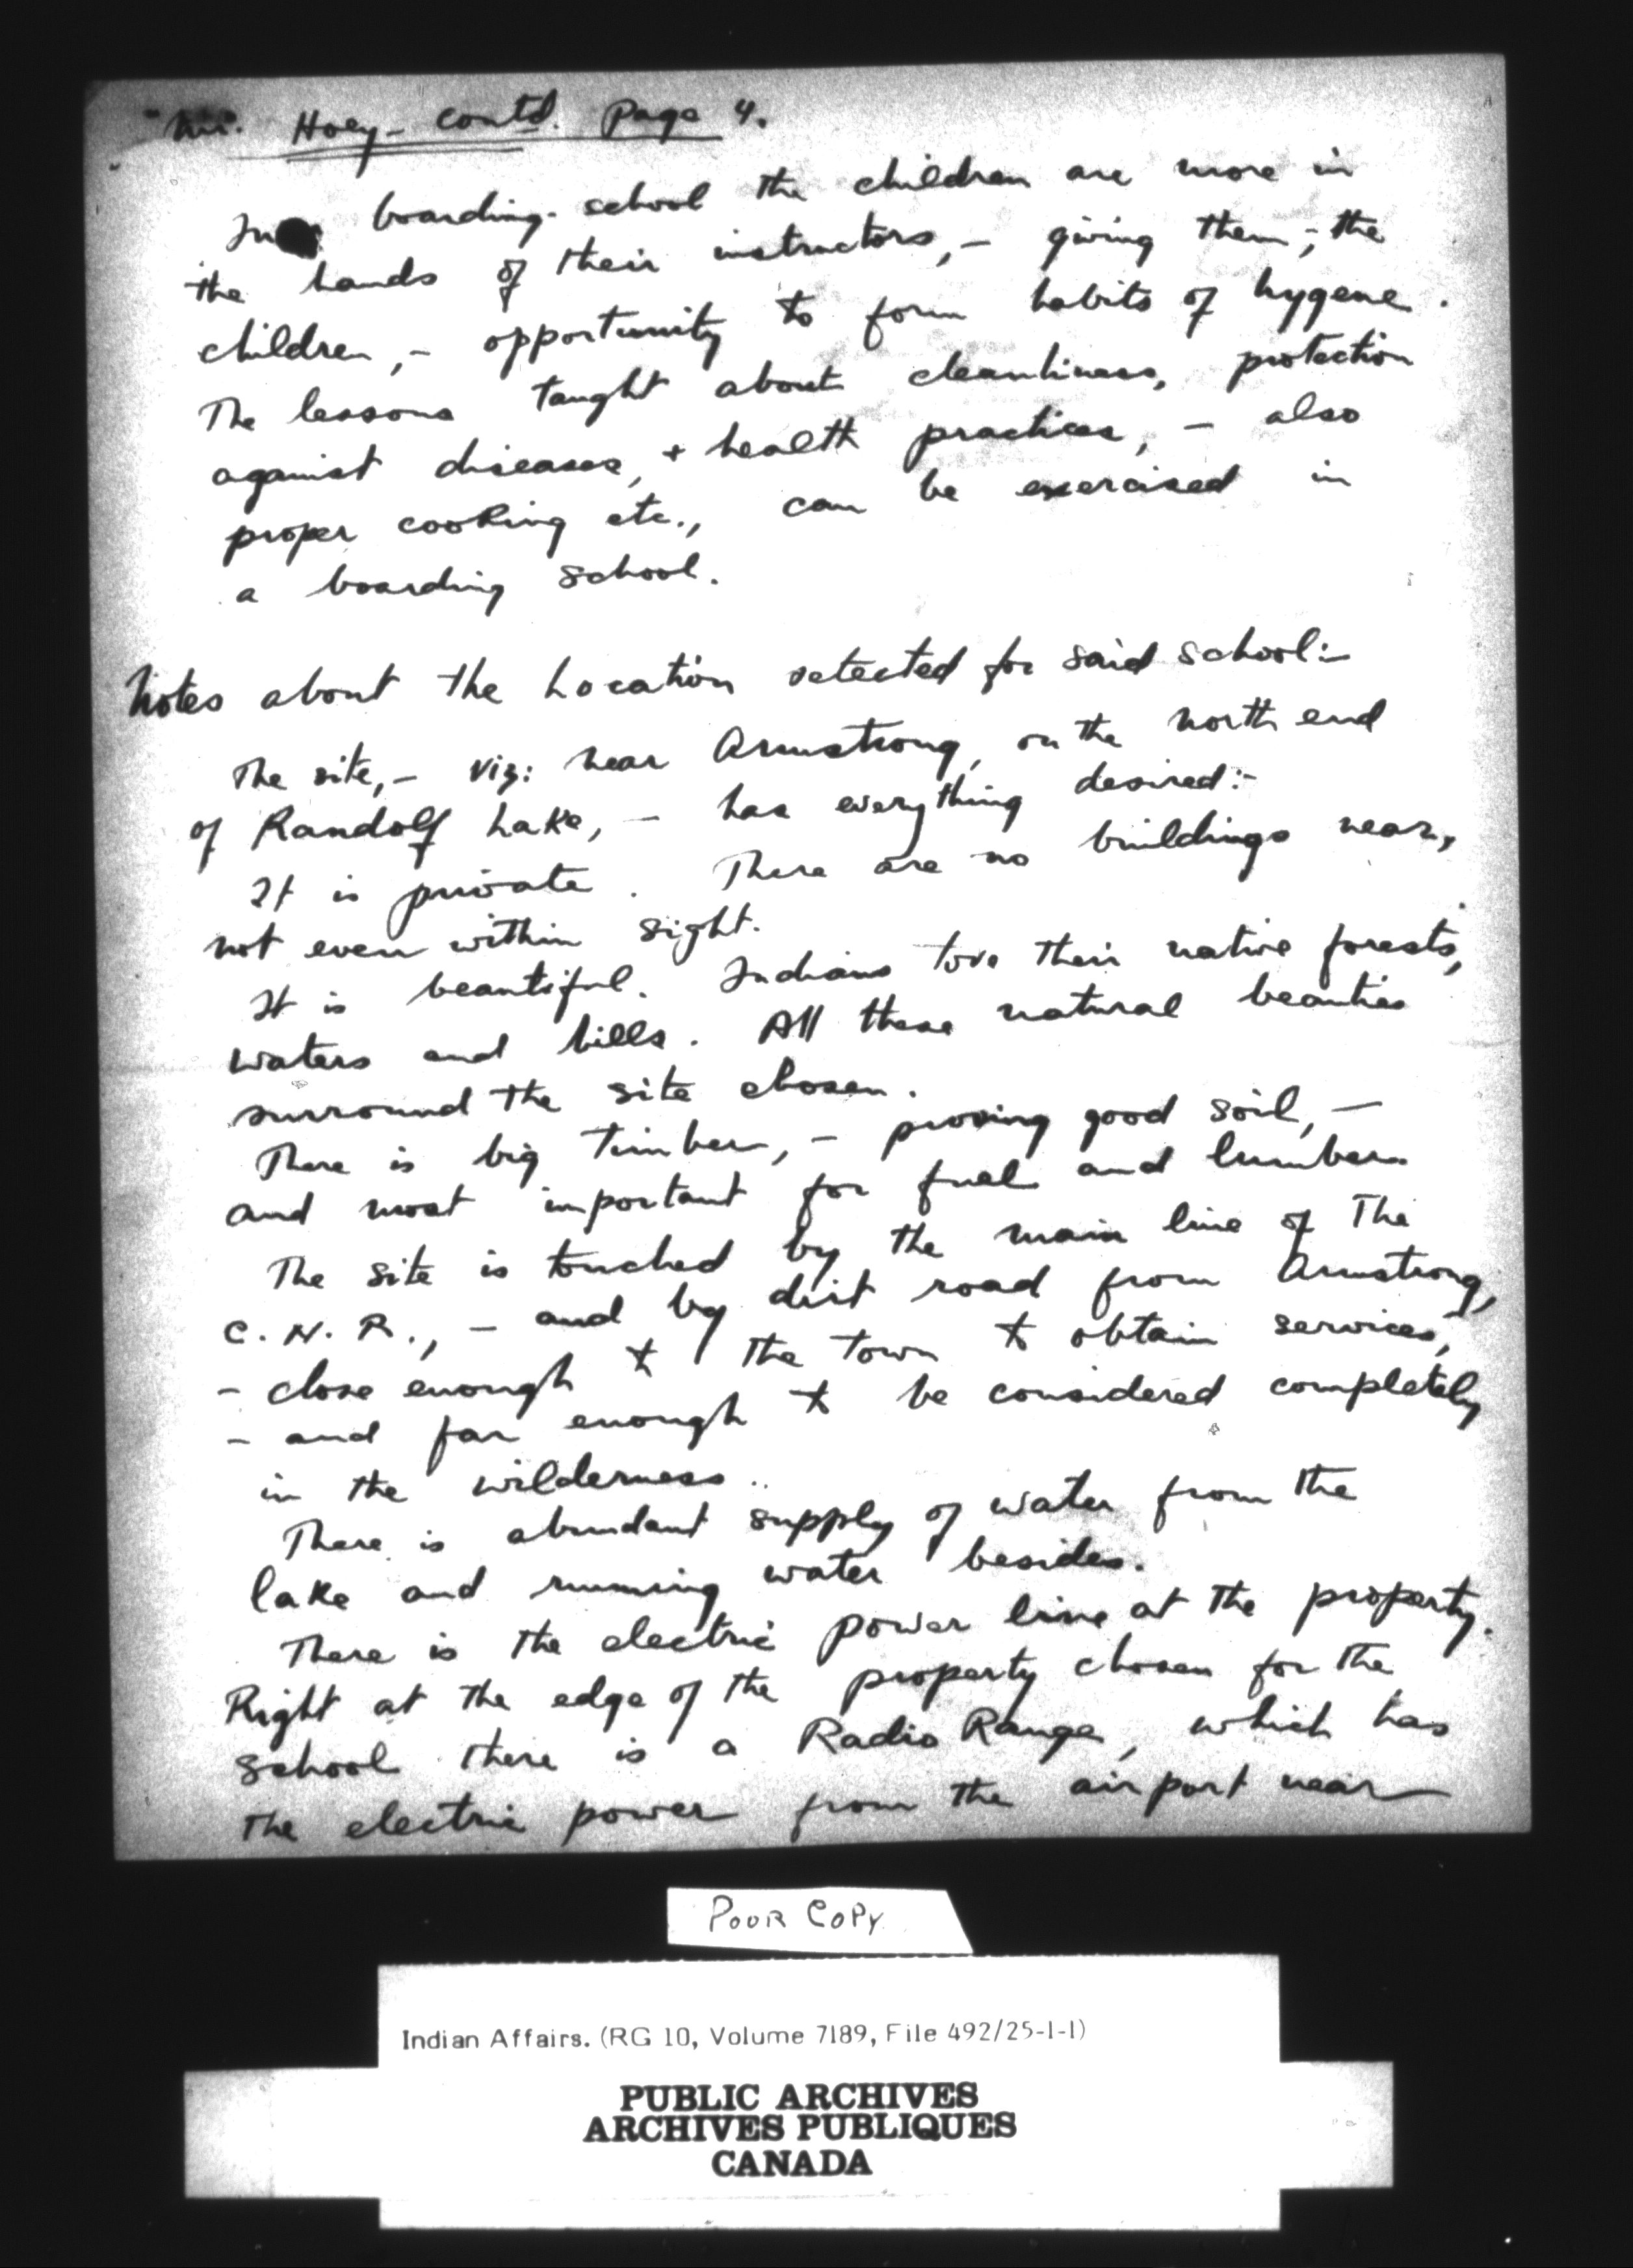 Mr. Hoey - contd. Page 4.
In boarding-school the children are more in
the hands of their instructors, - giving them, - the
children, - opportunity to form habits of hygene.
The lessons taught about cleanliness, protection
against diseases, + health practices, - also
proper cooking etc., can be exercised in
a boarding school.
Notes about the Location selected for said school:-
The site, - viz: near Armstrong, on the north end
of Randolf Lake, - has everything desired:-
It is private. There are no buildings near,
not even within sight.
It is beautiful. Indians love their native forests,
waters and hills. All these natural beauties
surround the site chosen.
There is big timber, - proving good soil, -
and most important for fuel and lumber.
The site is touched by the main line of The
C. N. R., - and by dirt road from Armstrong,
- close enough to the town to obtain services,
- and far enough to be considered completely
in the wilderness..
There is abundant supply of water from the
lake and running water besides.
There is the electric power line at the property.
Right at the edge of the property chosen for the
school there is a Radio Range, which has
the electric power from the airport near
POOR COPY
Indian Affairs. (RG 10, Volume 7189, File 492/25-1-1)
PUBLIC ARCHIVES
ARCHIVES PUBLIQUES
CANADA